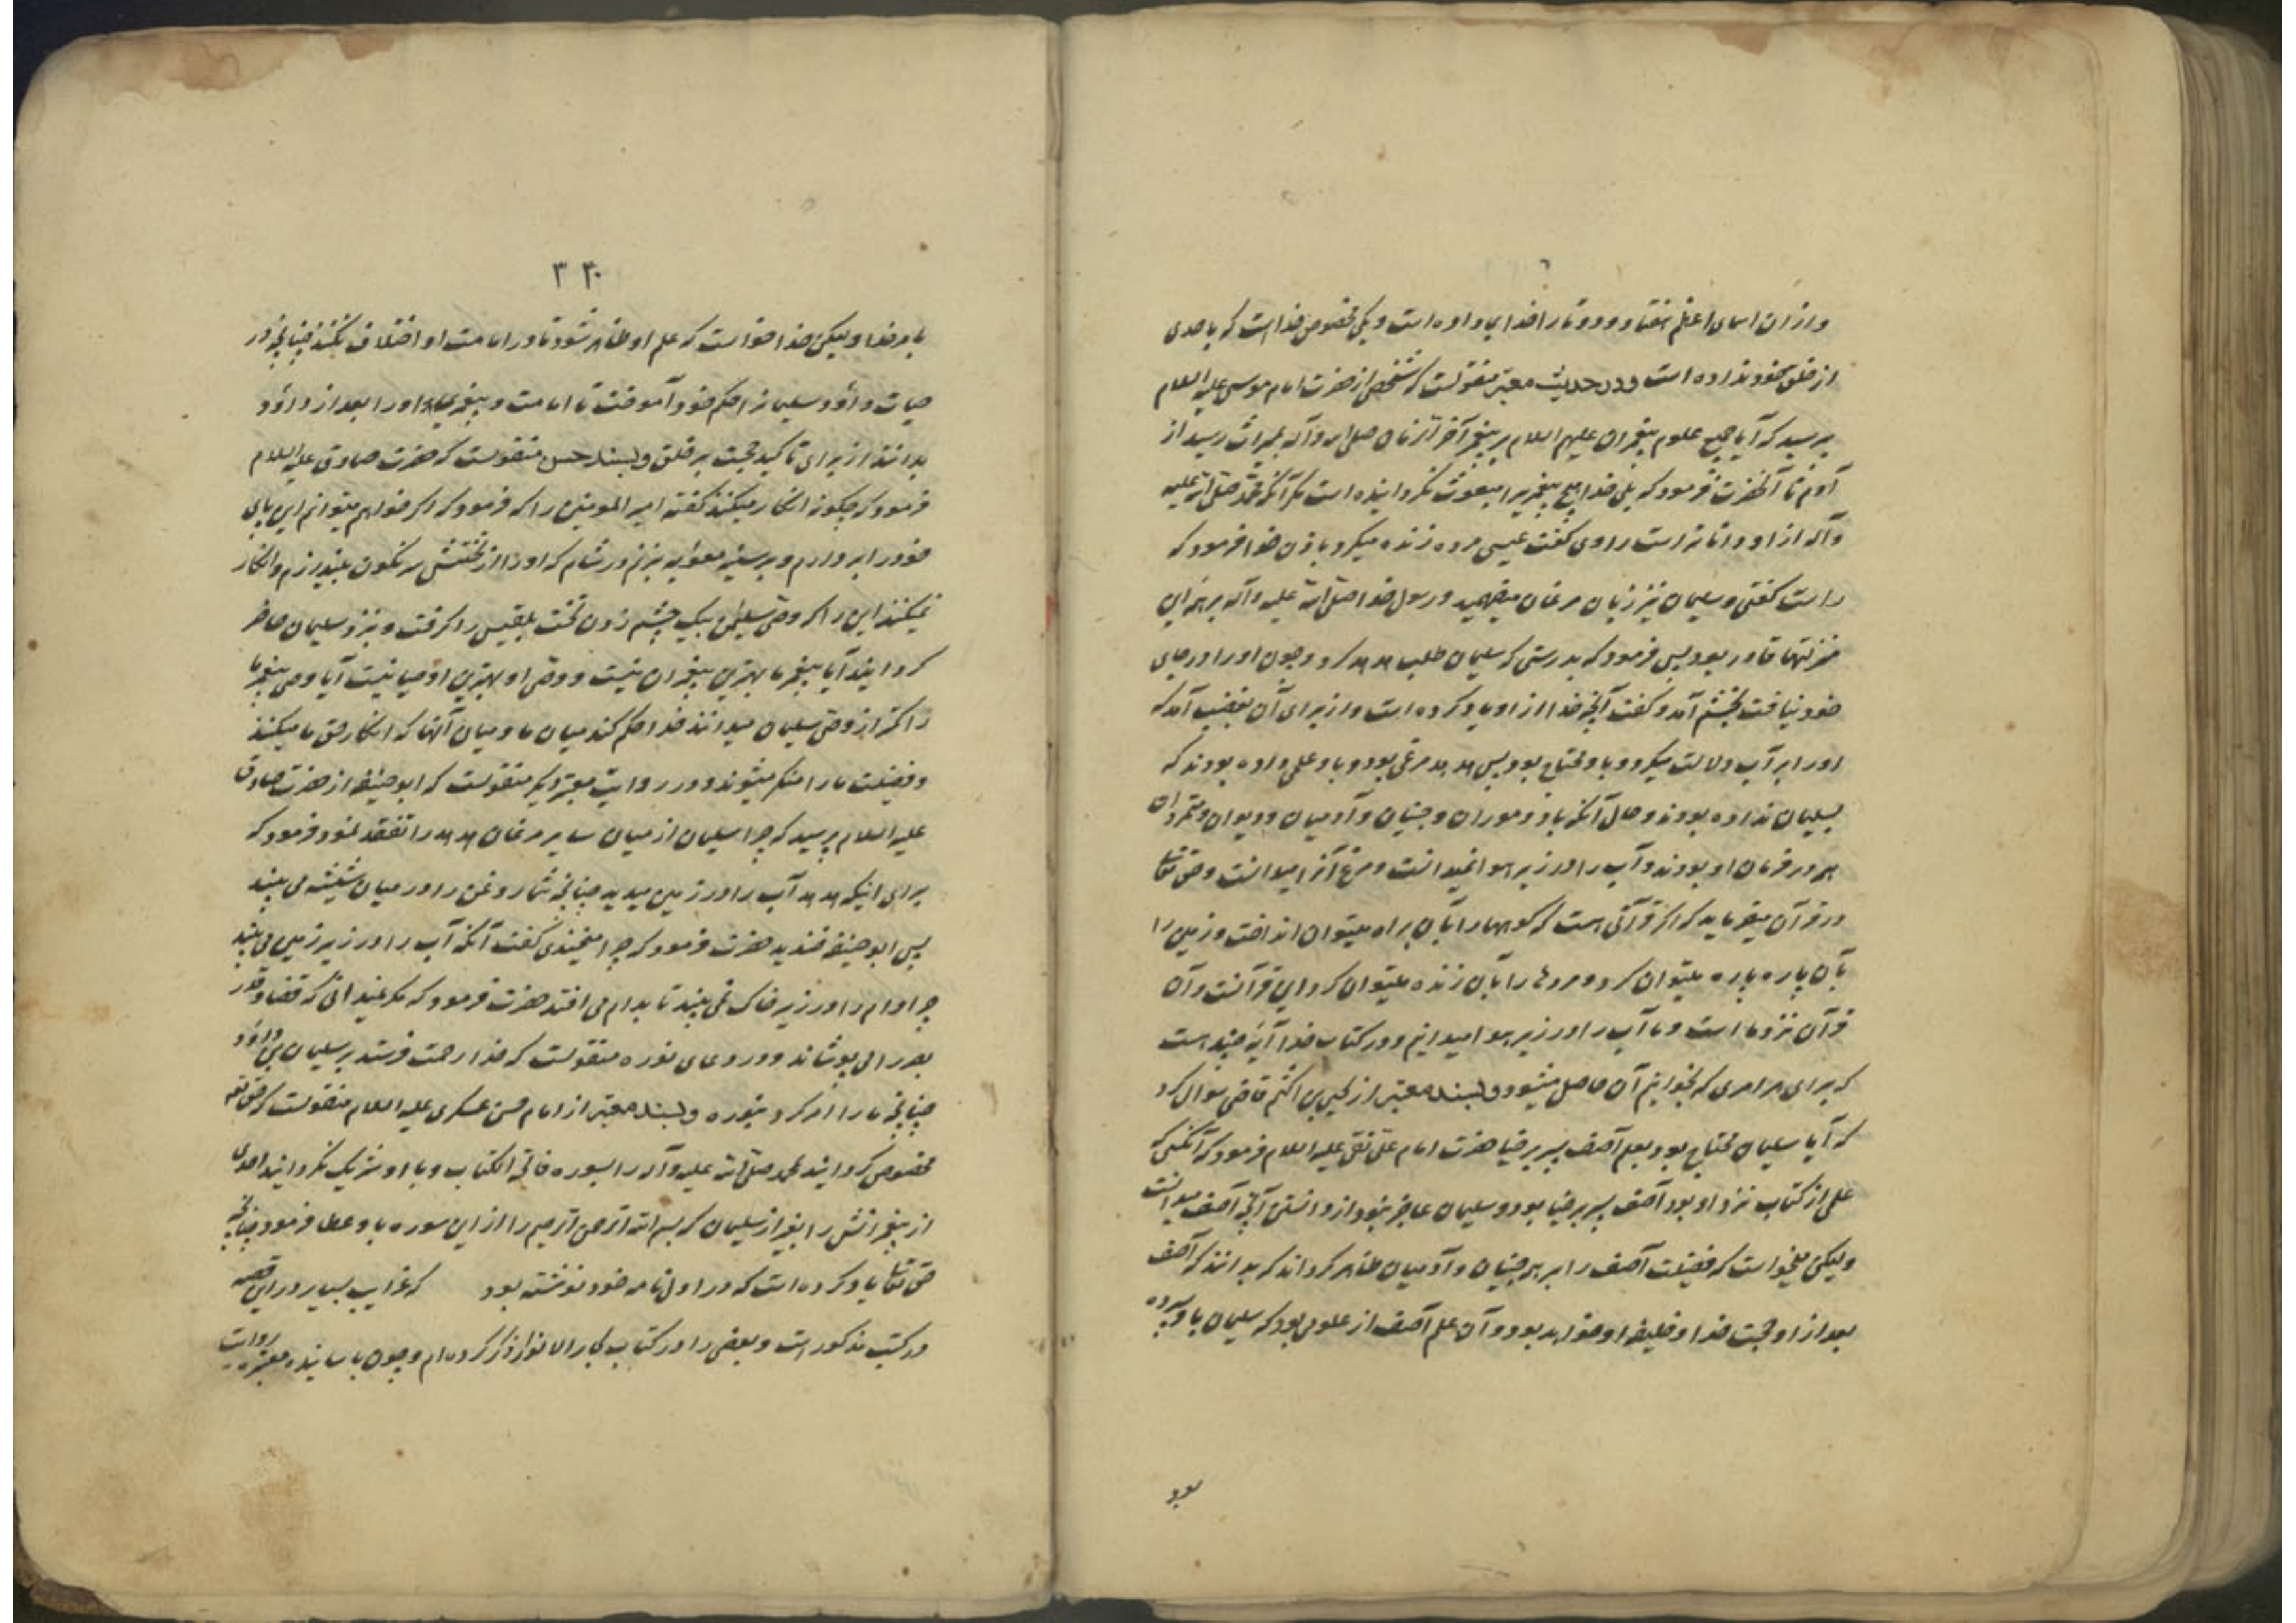 و از آن اسمای اعظم هفتاد و دو تا را خدا بما داده است و یکی مخصوص خداست که باحدی
از خلق خود نداده است و در حدیث معتبر منقولست که شخصی از حضرت امام موسی علیه السلام
پرسید که آیا جمیع علوم پیغمبران علیهم السلام بر پیغمبر آخر الزمان صلی الله و آله بمیراث رسید از
آدم تا آنحضرت فرمود که بلی خدا هیچ پیغمبریرا مبعوث نگردانیده است مگر آنکه محمد صلی الله علیه
و آله از او داناتر است راوی گفت عیسی مرده زنده میکرد باذن خدا فرمود که
راست گفتی و سلیمان نیز زبان مرغان میفهمید و رسول خدا صلی الله علیه و آله بر همه این
منزلتها قادر بود پس فرمود که بدرستی که سلیمان طلب هدهد کرد و چون او را در جای
خود نیافت بخشم آمد و گفت آنچه خدا از او یاد کرده است و از برای آن بغضب آمد که
او را بر آب دلالت میکرد و باو محتاج بود پس هدهد مرغی بود و باو علمی داده بودند که
بسلیمان نداده بودند و حال آنکه باد و موران و جنیان و آدمیان و دیوان و متمردان
همه در فرمان او بودند و آب را در زیر هوا نمیدانست و مرغ آنرا میدانست و حق تعالی
در قرآن میفرماید که اگر قرآنی هست که کوهها را بآن براه میتوان انداخت و زمین را
بآن پاره پاره میتوان کرد و مردها را بآن زنده میتوان کرد این قرآنست و آن
قرآن نزد ما است و ما آب را در زیر هوا میدانیم و در کتاب خدا آیه چند هست
که برای هر امری که بخوانیم آن حاصل میشود و بسند معتبر از یحیی بن اکثم قاضی سوال کرد
که آیا سلیمان محتاج بود بعلم آصف پسر برخیا حضرت امام علی نقی علیه السلام فرمود که آنکسی که
علمی از کتاب نزد او بود آصف پسر برخیا بود و سلیمان عاجز نبود از دانستن آنچه آصف میدانست
ولیکن میخواست که فضیلت آصف را بر همه جنیان و آدمیان ظاهر گرداند که بدانند که آصف
بعد از او حجت خدا و خلیفه او خواهد بود و آن علم آصف از علومی بود که سلیمان باو سپرده
بود
۳۳۰
بامر خدا ولیکن خدا خواست که علم او ظاهر شود تا در امامت او اختلاف نکنند چنانچه در
حیات داوٗد سلیمان را حکم خود آموخت تا امامت و پیغمبری او را بعد از داوٗد
بدانند از برای تاکید حجت بر خلق و بسند حسن منقولست که حضرت صادق علیه السلام
فرمود که چگونه انکار میکنند گفته امیر المومنین را که فرمود که اگر خواهم میتوانم این پای
خود را بردارم و بر سینه معویه بزنم در شام که او را از تختش سرنگون بیندازم و انکار
نمیکنند این را که وصی سلیمان بیک چشم زدن تخت بلقیس را گرفت و نزد سلیمان حاضر
گردانید آیا پیغمبر ما بهترین پیغمبران نیست و وصی او بهترین اوصیا نیست آیا وصی پیغمبر ما
را کمتر از وصی سلیمان میدانند خدا حکم کند میان ما و میان آنها که انکار حق ما میکنند
و فضیلت ما را منکر میشوند و در روایت معتبر دیگر منقولست که ابو حنیفه از حضرت صادق
علیه السلام پرسید که چرا سلیمان از میان سایر مرغان هدهد را تفقد نمود فرمود که
برای اینکه هدهد آب را در زمین میدید چنانچه شما روغن را در میان شیشه می بینید
پس ابو حنیفه خندید حضرت فرمود که چرا میخندی گفت آنکه آب را در زیر زمین می بیند
چرا دام را در زیر خاک نمی بیند تا بدام می افتد حضرت فرمود که مگر نمیدانی که قضا و قدر
بصر را می پوشاند و در دعای نوره منقولست که خدا رحمت فرستد بر سلیمان بن داوٗد
چنانچه ما را امر کرد بنوره و بسند معتبر از امام حسن عسکری علیه السلام منقولست که حق تعالی
مخصوص گردانید محمد صلی الله علیه و آله را بسوره فاتحة الکتاب و با او شریک نگردانید احدی
از پیغمبرانش را بغیر از سلیمان که بسم الله الرحمن الرحیم را از این سوره باو عطا فرمود چنانچه
حق تعالی یاد کرده است که در اول نامه خود نوشته بود که غرایب بسیار در این قصه
در کتب مذکور است و بعضی را در کتاب بحار الانوار ذکر کرده ام و چون باسانید معتبره روایت